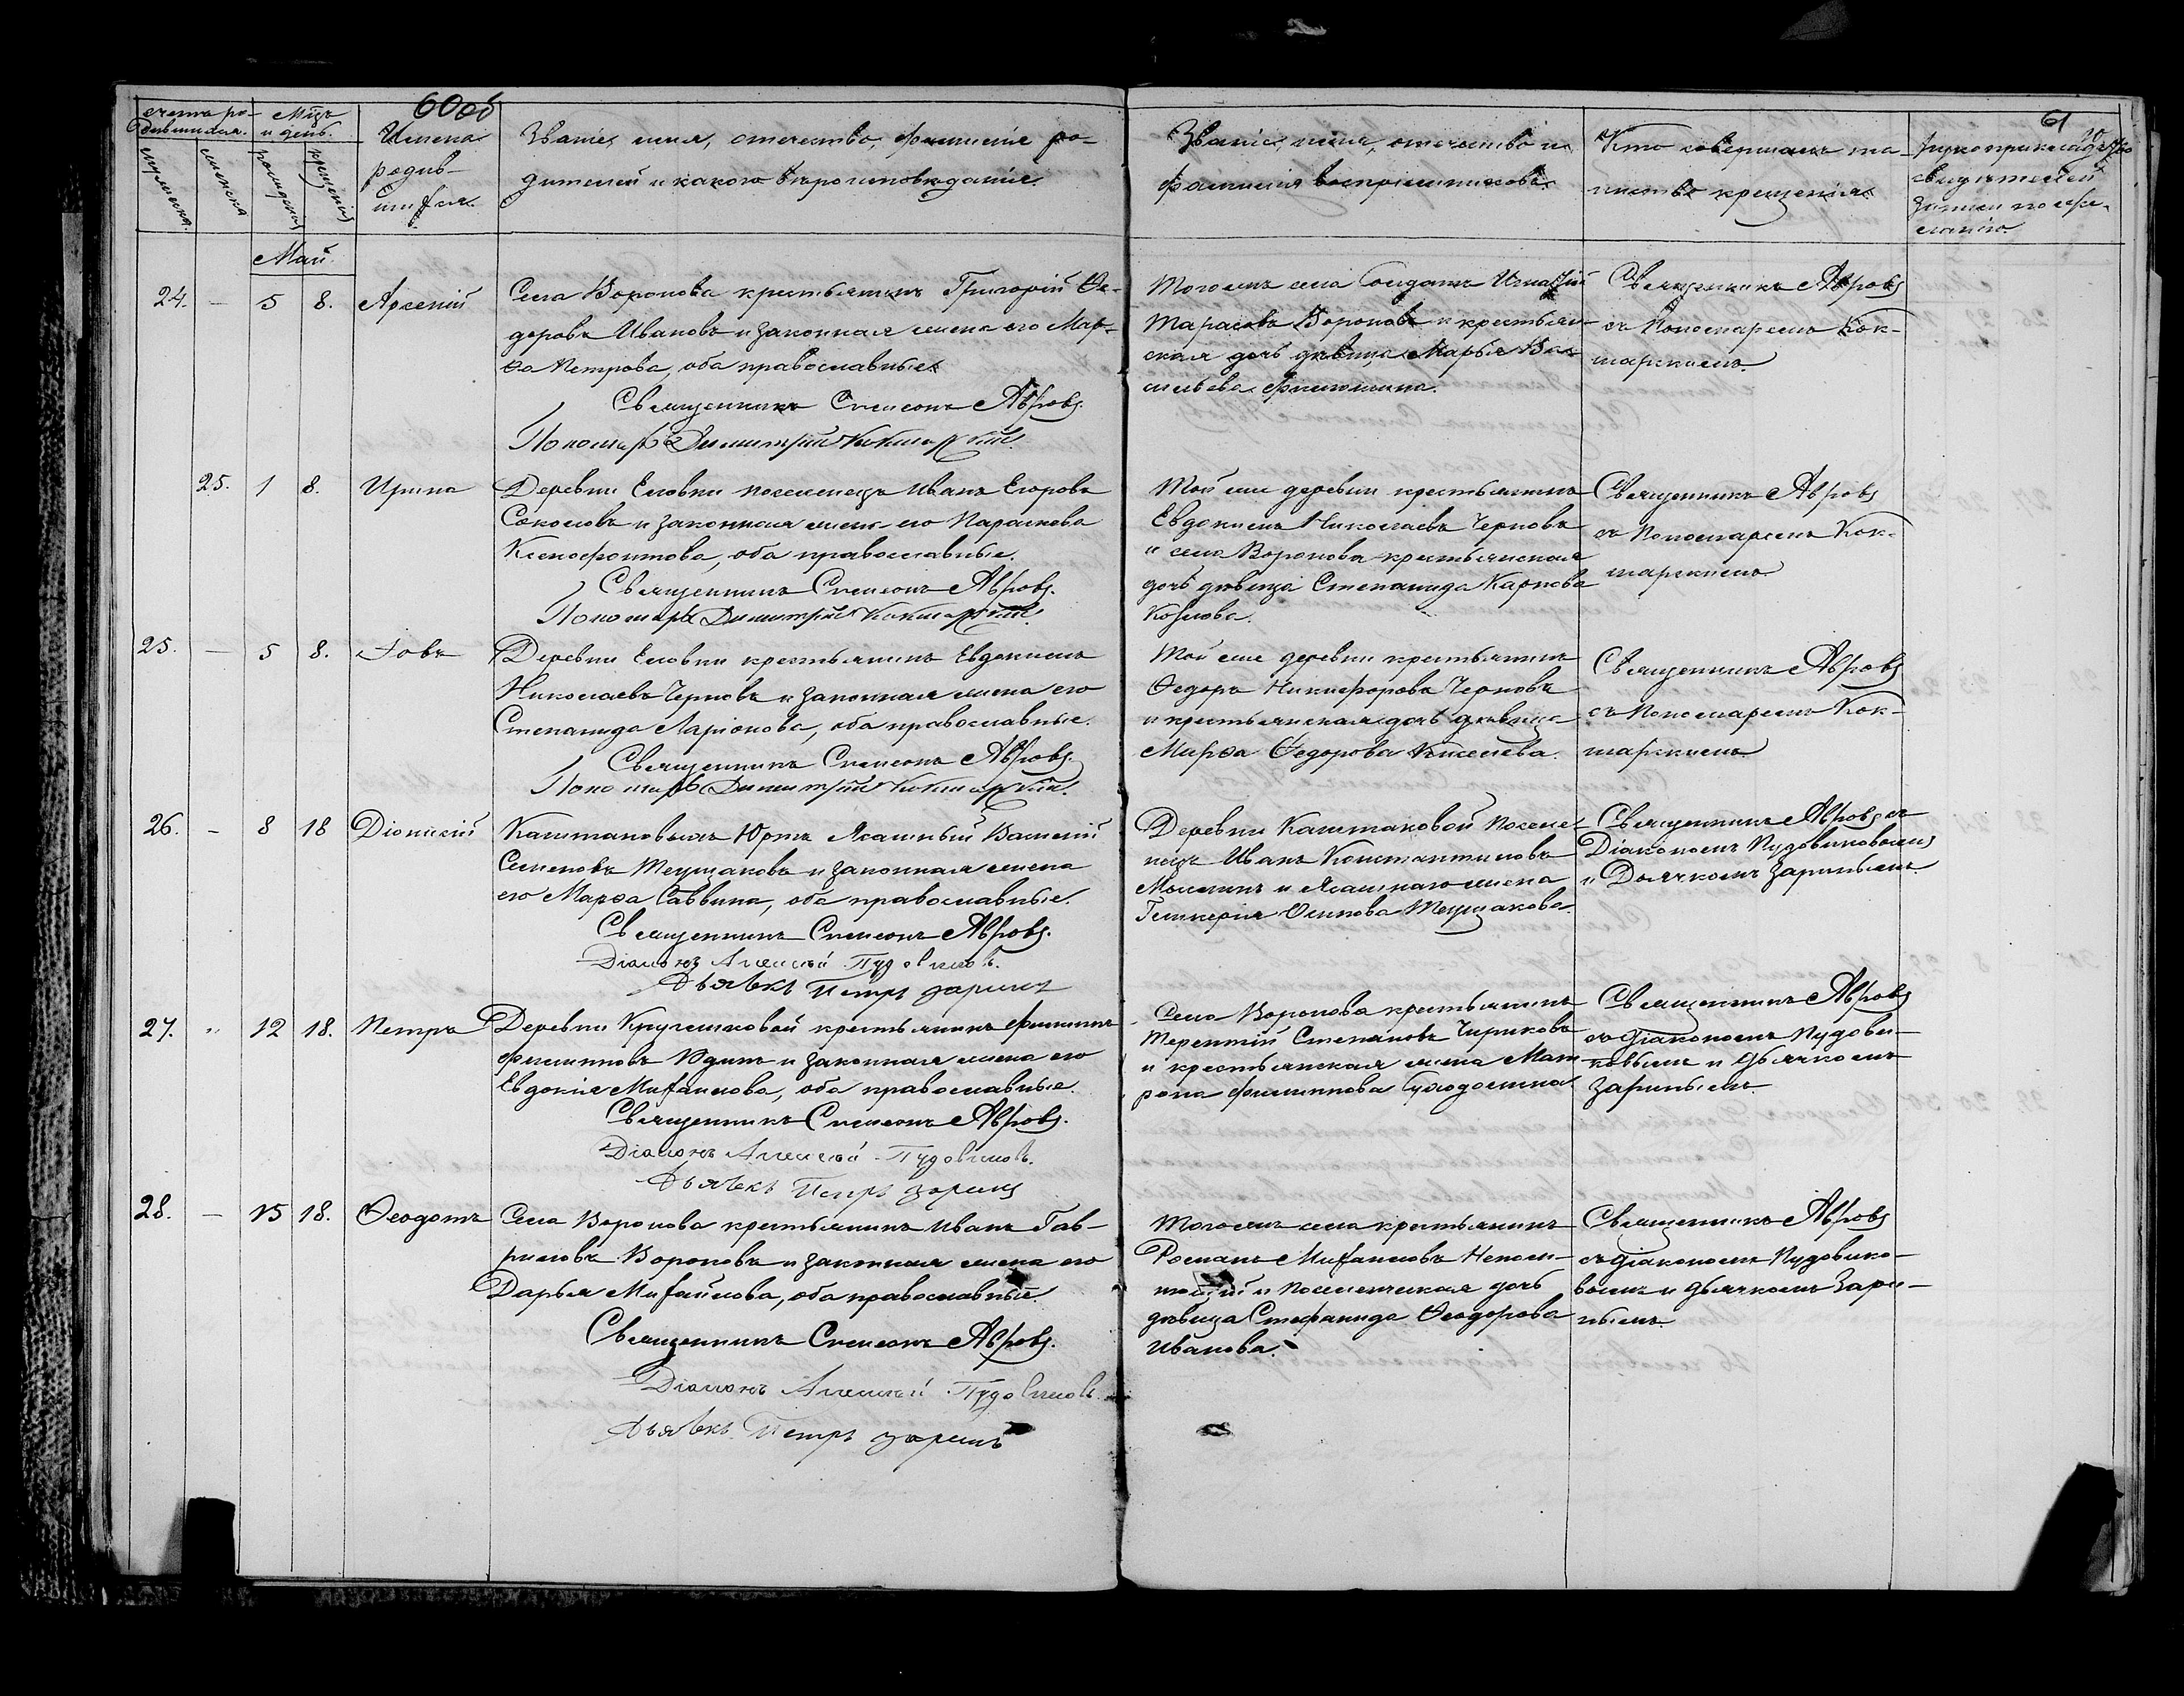 60об
61
счетъ ро-
дившихся.
Мцъ
и день.
Имена
родив-
шихся.
Званіе, имя, отчество, фамиліе ро-
дителей и какого вѣроисповѣданіе.
Званіе, имя, отчество и
фамилія воспріемниковъ.
Кто совершалъ та-
инство крещенія.
Рукоприкладство
свидѣтелей
записи по же-
ланію.
мужеска.
женска
рожденія
крещенія
Май.
24. — 5 8. Арсеній
Села Воронова крестьянинъ Григорій Ѳе-
доровъ Ивановъ и законная жена его Мар-
ѳа Петрова, оба православные
Священникъ Симеонъ Авровъ.
Пономарь Димитрій Кокшарскій.
Тогожъ села Солдатъ Игнатій
Тарасовъ Вороновъ и крестьян-
ская дочь дѣвица Марья Ва-
сильева Филюшина.
Священникъ Авровъ
съ Пономаремъ Кок-
шарскимъ.
25. 1 8. Ирина
Деревни Еловки поселенецъ Иванъ Егоровъ
Соколовъ и законная жена его Параскева
Ксенофонтова, оба православные.
Священникъ Симеонъ Авровъ.
Пономарь Димитрій Кокшарскій.
Той же деревни крестьянинъ
Евдокимъ Николаевъ Черновъ
и села Воронова крестьянская
дочь дѣвица Степанида Карпова
Козлова.
Священникъ Авровъ
съ Пономаремъ Кок-
шарскимъ.
25. — 5 8. Іовъ
Деревни Еловки крестьянинъ Евдокимъ
Николаевъ Черновъ и законная жена его
Степанида Ларіонова, оба православные.
Священникъ Симеонъ Авровъ.
Пономарь Димитрій Кокшарскій.
Той же деревни крестьянинъ
Ѳедоръ Никифоровъ Черновъ
и крестьянская дочь дѣвица
Марѳа Ѳедорова Киселева.
Священникъ Авровъ
съ Пономаремъ Кок-
шарскимъ.
26. — 8 18 Діонисій
Каштаковыхъ Юртъ Ясашный Василій
Семеновъ Теущаковъ и законная жена
его Марѳа Саввина, оба православные.
Священникъ Симеонъ Авровъ.
Діаконъ Алексѣй Пудовиковъ.
Дьячекъ Петръ Заринъ
Деревни Каштаковой Поселе-
нецъ Иванъ Константиновъ
и Ясашнаго жена
Гликерія Осипова Теущакова.
Священникъ Авровъ съ
Діакономъ Пудовиковымъ
и Дьячкомъ Заринымъ.
27. „ 12 18. Петръ
Деревни крестьянинъ Филиппъ
Филипповъ Юдинъ и законная жена его
Евдокія Михаилова, оба православные.
Священникъ Симеонъ Авровъ.
Діаконъ Алексѣй Пудовиковъ.
Дьячекъ Петръ Заринъ
Села Воронова крестьянинъ
Терентій Степановъ Чириковъ
и крестьянская жена Мат-
рона Филиппова
Священникъ Авровъ
съ Діакономъ Пудови-
ковымъ и Дьячкомъ
Заринымъ.
28. — 15 18. Ѳеодотъ
Села Воронова крестьянинъ Иванъ Гав-
риловъ Вороновъ и законная жена его
Дарья Михайлова, оба православные.
Священникъ Симеонъ Авровъ.
Діаконъ Алексѣй Пудовиковъ.
Дьячекъ Петръ Заринъ
Тогожъ села крестьянинъ
Романъ Михаиловъ Непом-
нющій и Поселенческая дочь
дѣвица Стефанида Ѳеодорова
Иванова.
Священникъ Авровъ
съ Діакономъ Пудовико-
вымъ и Дьячкомъ Зари-
нымъ.